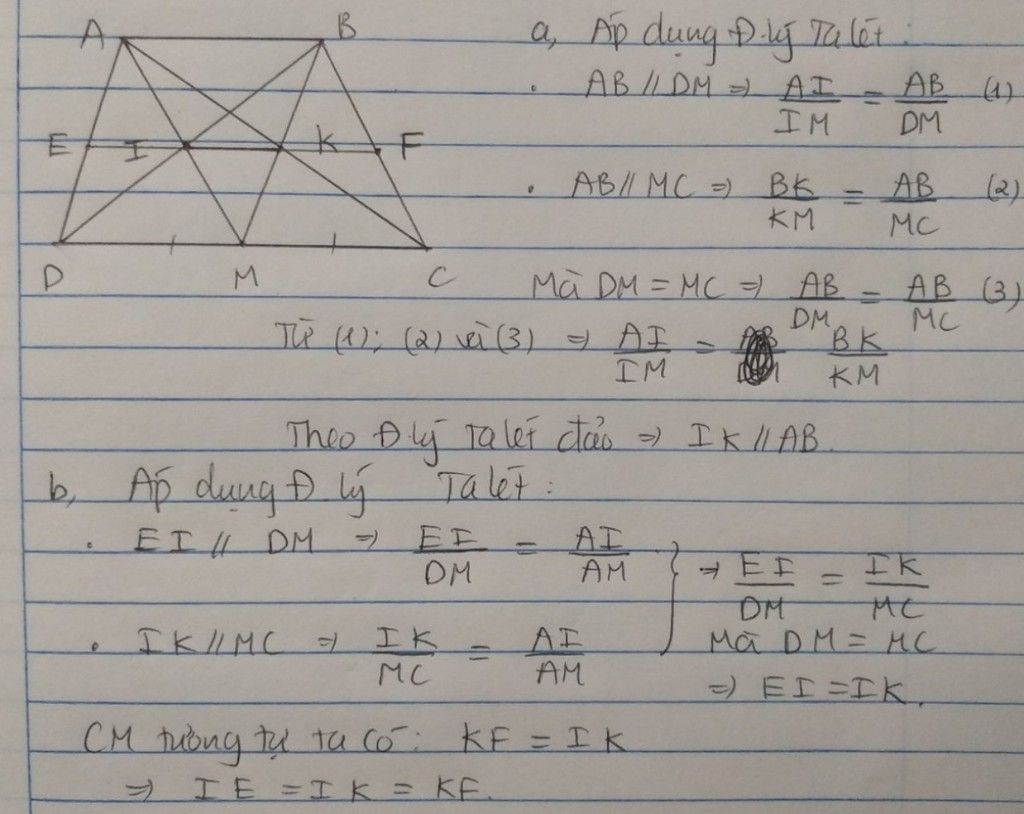 A B
E I K F
D M C
a, Áp dụng Đ.lý Talét:
. AB // DM ⇒ AI/IM = AB/DM (1)
. AB // MC ⇒ BK/KM = AB/MC (2)
Mà DM = MC ⇒ AB/DM = AB/MC (3)
Từ (1); (2) và (3) ⇒ AI/IM = BK/KM
Theo Đ.lý Talét đảo ⇒ IK // AB.
b, Áp dụng Đ lý Talét:
. EI // DM ⇒ EI/DM = AI/AM
. IK // MC ⇒ IK/MC = AI/AM
} ⇒ EI/DM = IK/MC
Mà DM = MC
⇒ EI = IK.
CM tương tự ta có: KF = IK
⇒ IE = IK = KF.